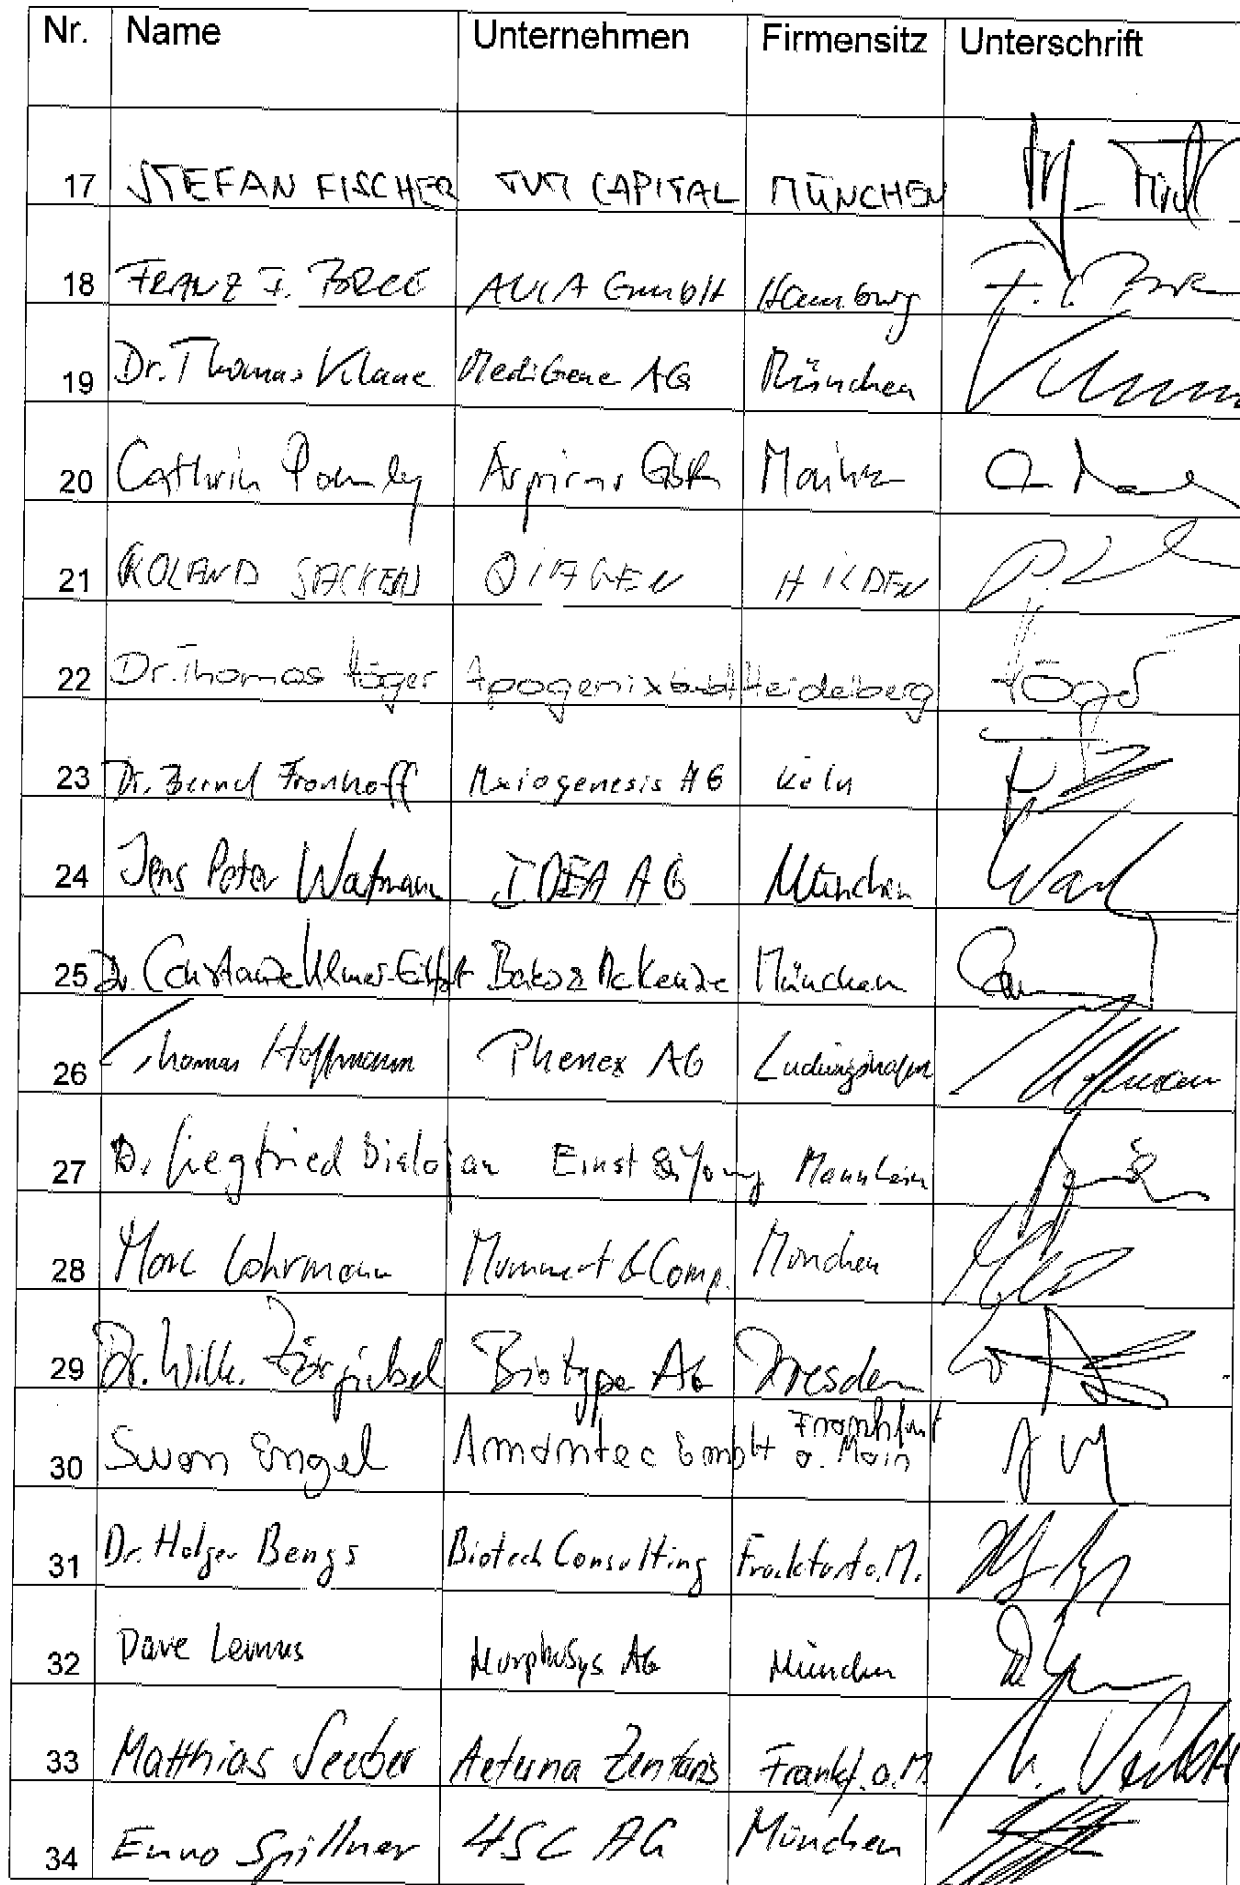 Nr. Name Unternehmen Firmensitz Unterschrift
17 STEFAN FISCHER TVM CAPITAL MÜNCHEN
18 FRANZ J. GmbH Hamburg
19 Dr. Thomas Klaue MediGene AG München
20 Cathrin GbR Mainz
21 ROLAND SACKERS QIAGEN HILDEN
22 Dr. Thomas Höger Apogenix GmbH Heidelberg Höger
23 Dr. Bernd Fronhoff Axiogenesis AG Köln
24 Jens Peter IDEA AG München
25 Dr. Constanze Ulmer-Eilfort Baker & McKenzie München
26 Thomas Hoffmann Phenex AG Ludwigshafen Hoffmann
27 Dr. Siegfried Bialojan Ernst & Young Mannheim
28 Marc Lohrmann Mummert & Comp. München
29 Dr. Wilh. Zörgiebel Biotype AG Dresden
30 Swan Engel Amontec GmbH Frankfurt
a. Main
31 Dr. Holger Bengs Biotech Consulting Frankfurt a. M.
32 Dave Lemus MorphoSys AG München
33 Matthias Seeber Aeterna Zentaris Frankf. a. M.
34 Enno Spillner 4SC AG München